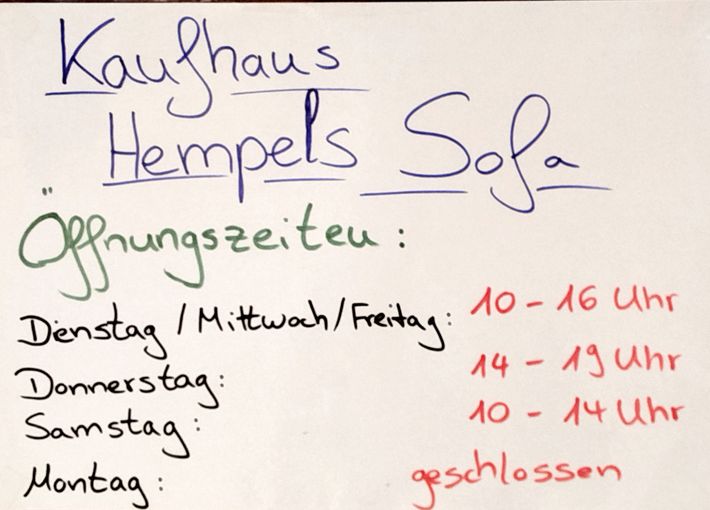 Kaufhaus
Hempels Sofa
Öffnungszeiten:
Dienstag / Mittwoch / Freitag: 10 - 16 Uhr
Donnerstag: 14 - 19 Uhr
Samstag: 10 - 14 Uhr
Montag: geschlossen